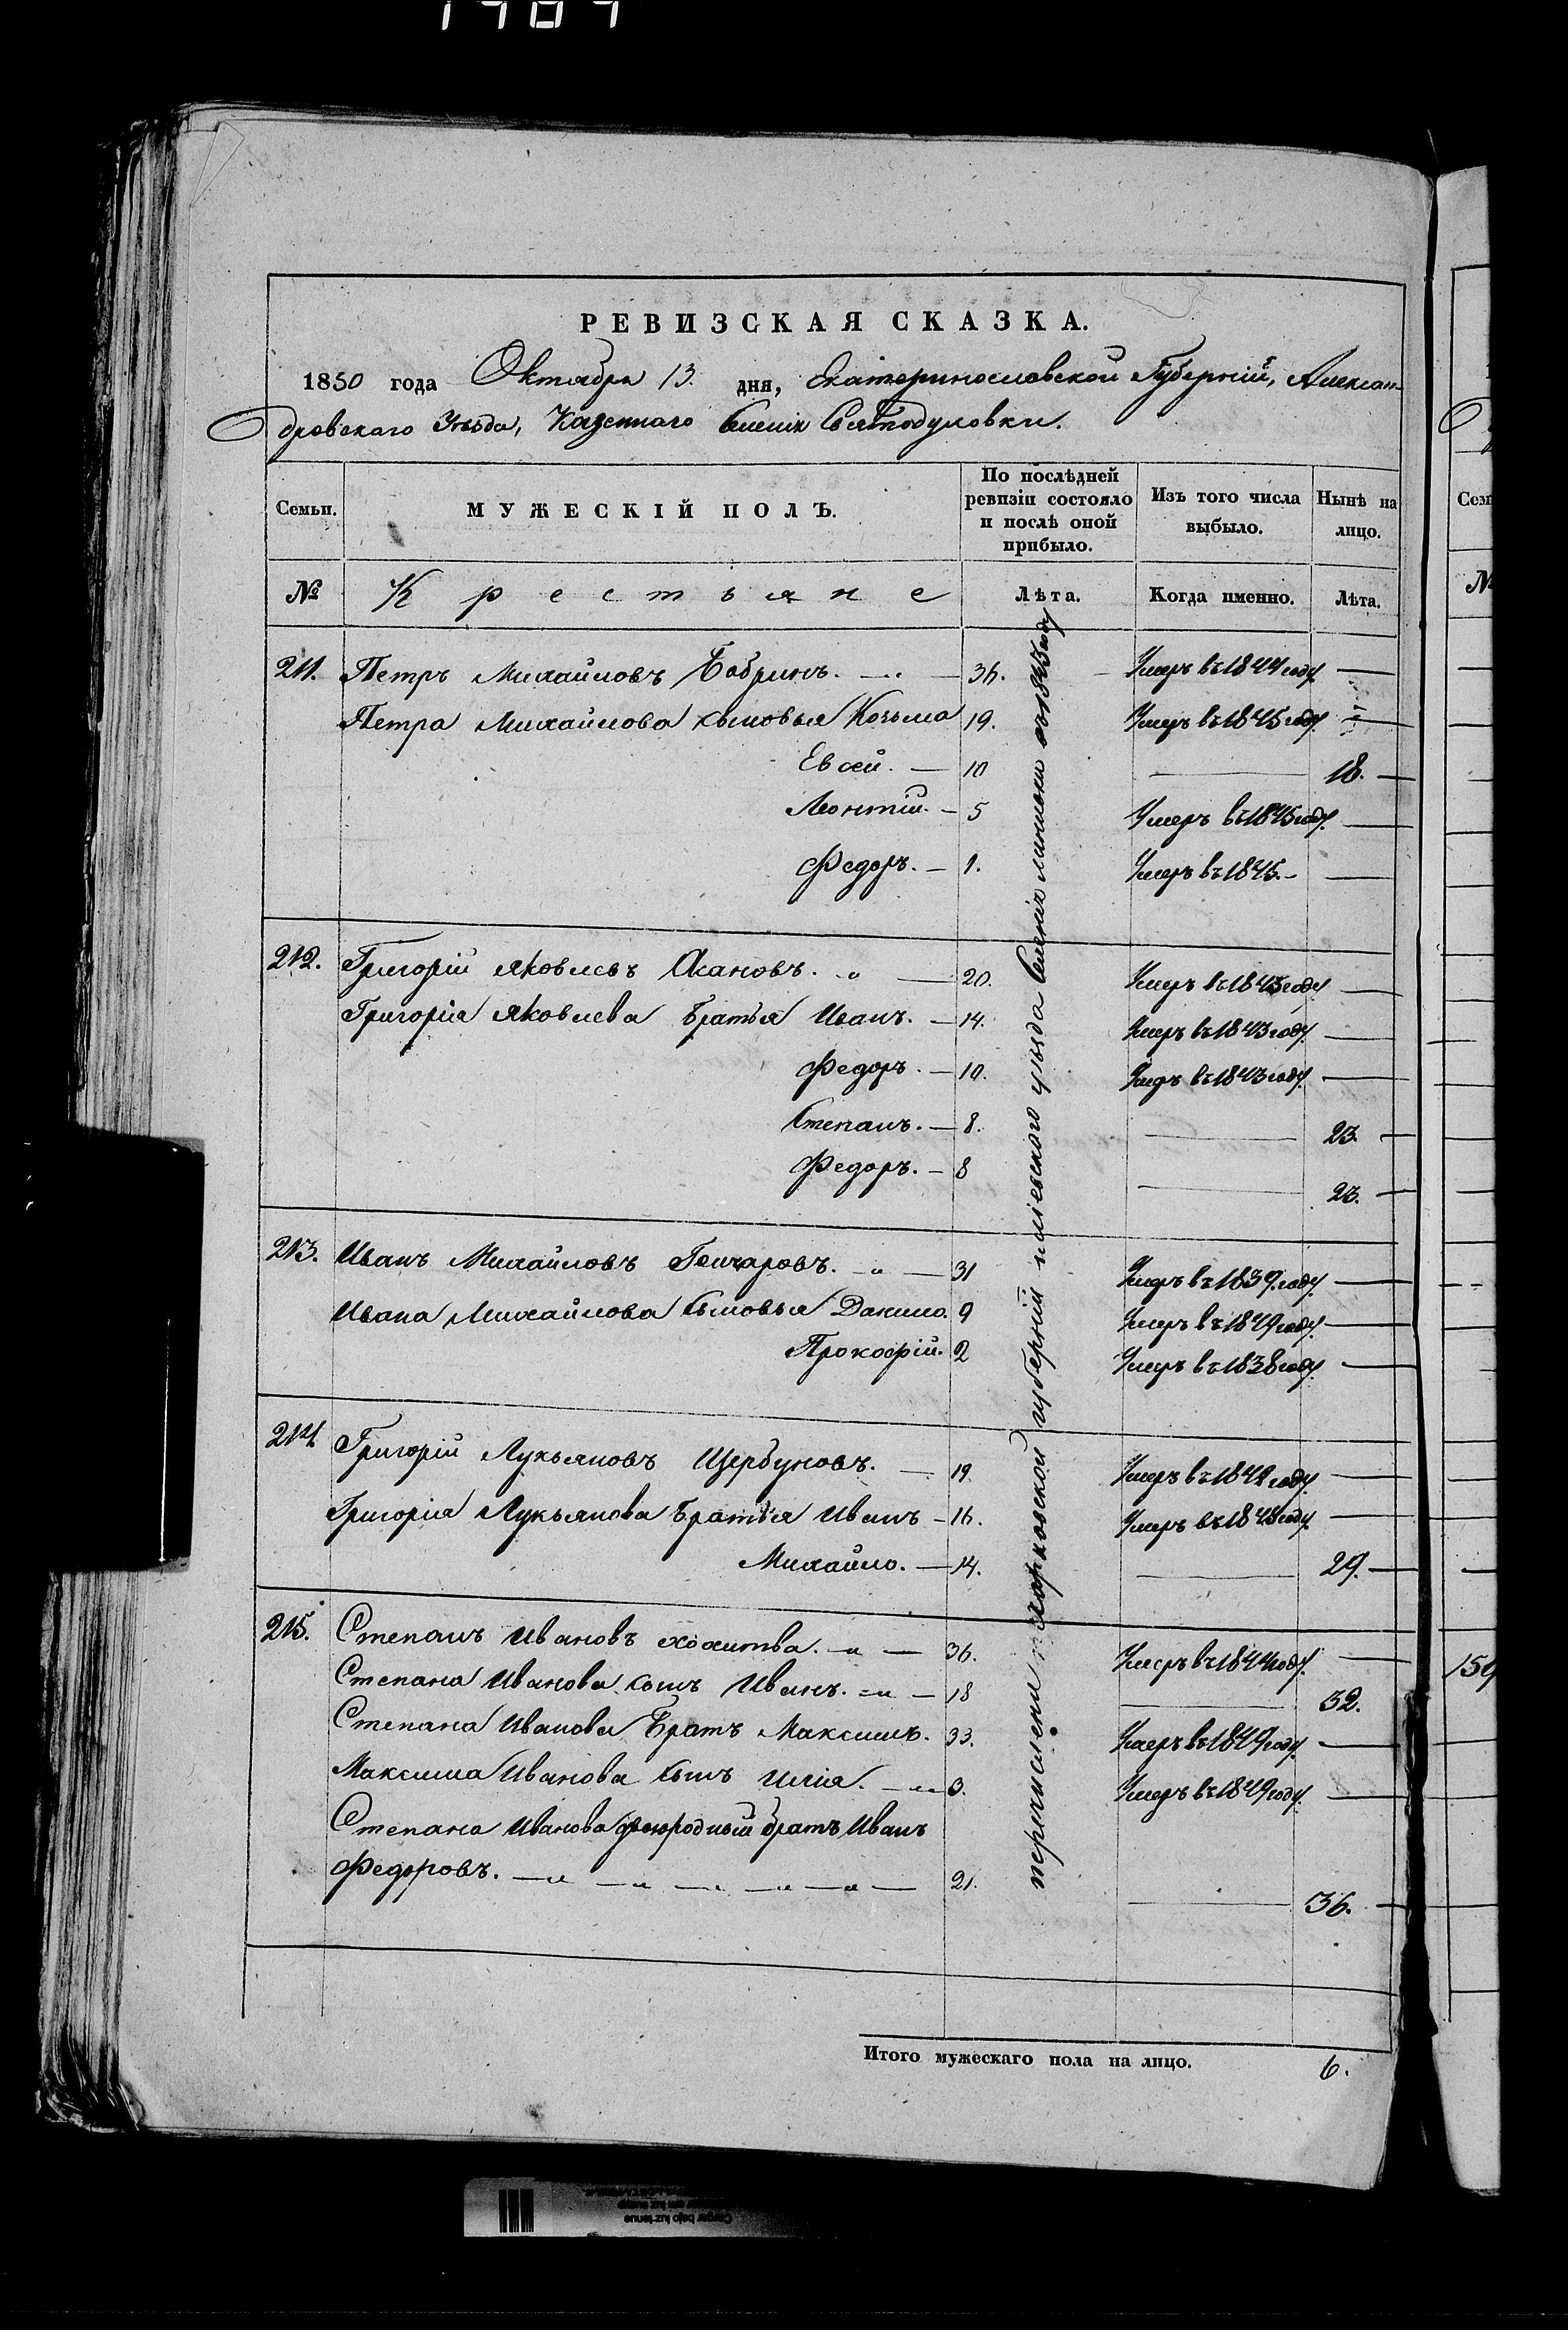 РЕВИЗСКАЯ СКАЗКА.
1850 года Октября 13. дня, Екатеринославской Губерніи, Алексан-
дровскаго Уѣзда, Казеннаго Селенія Святодуховки.
Семьи.
МУЖЕСКІЙ ПОЛЪ.
По послѣдней ревизіи состояло и послѣ оной прибыло.
Изъ того числа выбыло.
Нынѣ на лицо.
№ Крестьяне Лѣта. Когда именно. Лѣта.
211. Петръ Михайловъ Бобринъ. 36. Умеръ въ 1844 году
Петра Михайлова сыновья Козьма 19. Умеръ въ 1845 году.
Евсей. — 10 — 18. —
Леонтій. — 5 Умеръ въ 1845 году. —
Федоръ. — 1. Умеръ въ 1845. —
212. Григорій Яковлевъ — 20. Умеръ въ 1843 году —
Григорія Яковлева Братья Иванъ. — 14. Умеръ въ 1843 году. —
Федоръ. — 10. Умеръ въ 1843 году. —
Степанъ. — 8. — 23. —
Федоръ. — 8 — 23. —
213. Иванъ Михайловъ Гончаровъ. — 31 Умеръ въ 1839. году. —
Ивана Михайлова Сыновья Данило. 9 Умеръ въ 1849 году. —
Прокофій. 2 Умеръ въ 1838 году. —
214. Григорій Лукьяновъ Щербуновъ. — 19 Умеръ въ 1842 году. —
Григорія Лукьянова Братья Иванъ — 16. Умеръ въ 1848 году. —
Михайло. — 14. — 29. —
215. Степанъ Ивановъ — 36. Умеръ въ 1844 году. —
Степана Иванова Сынъ Иванъ. — 18 — 32.
Степана Иванова Братъ Максимъ. 33. Умеръ въ 1849 году. —
Максима Иванова Сынъ Илія. — 3. Умеръ въ 1849 году. —
Степана Иванова двоюродный братъ Иванъ
Федоровъ. — 21. — 36. —
перечислены Харьковской губерніи уѣзда Селенія
Итого мужескаго пола на лицо. 6.
Сем
№
159